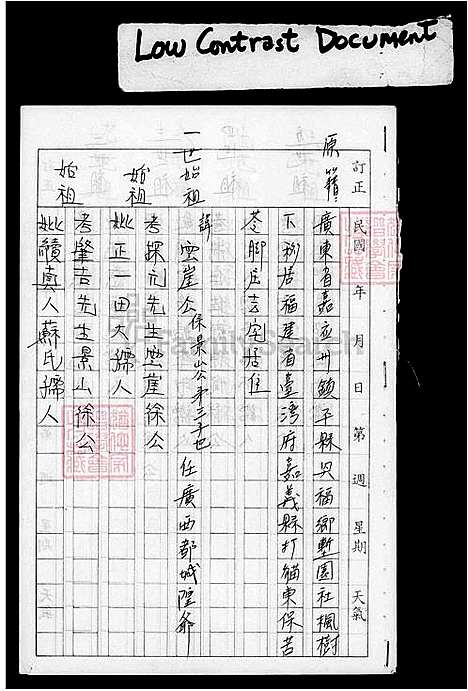 Low Contrast Document
訂正 民國 年 月 日 第 週 星期 天氣
原籍
廣東省嘉应州鎮平縣興福鄉塹園社楓樹
下移居福建省臺灣府嘉義縣打貓東保苦
苓腳庄去宅居住
一世始祖
諱 雲崖公 係景山公第三子也 任廣西都城隍爺
考探元先生雲崖徐公
始祖
妣正一田大孺人
考肇吉先生景山徐公
始祖
妣贖真人蘇氏孺人